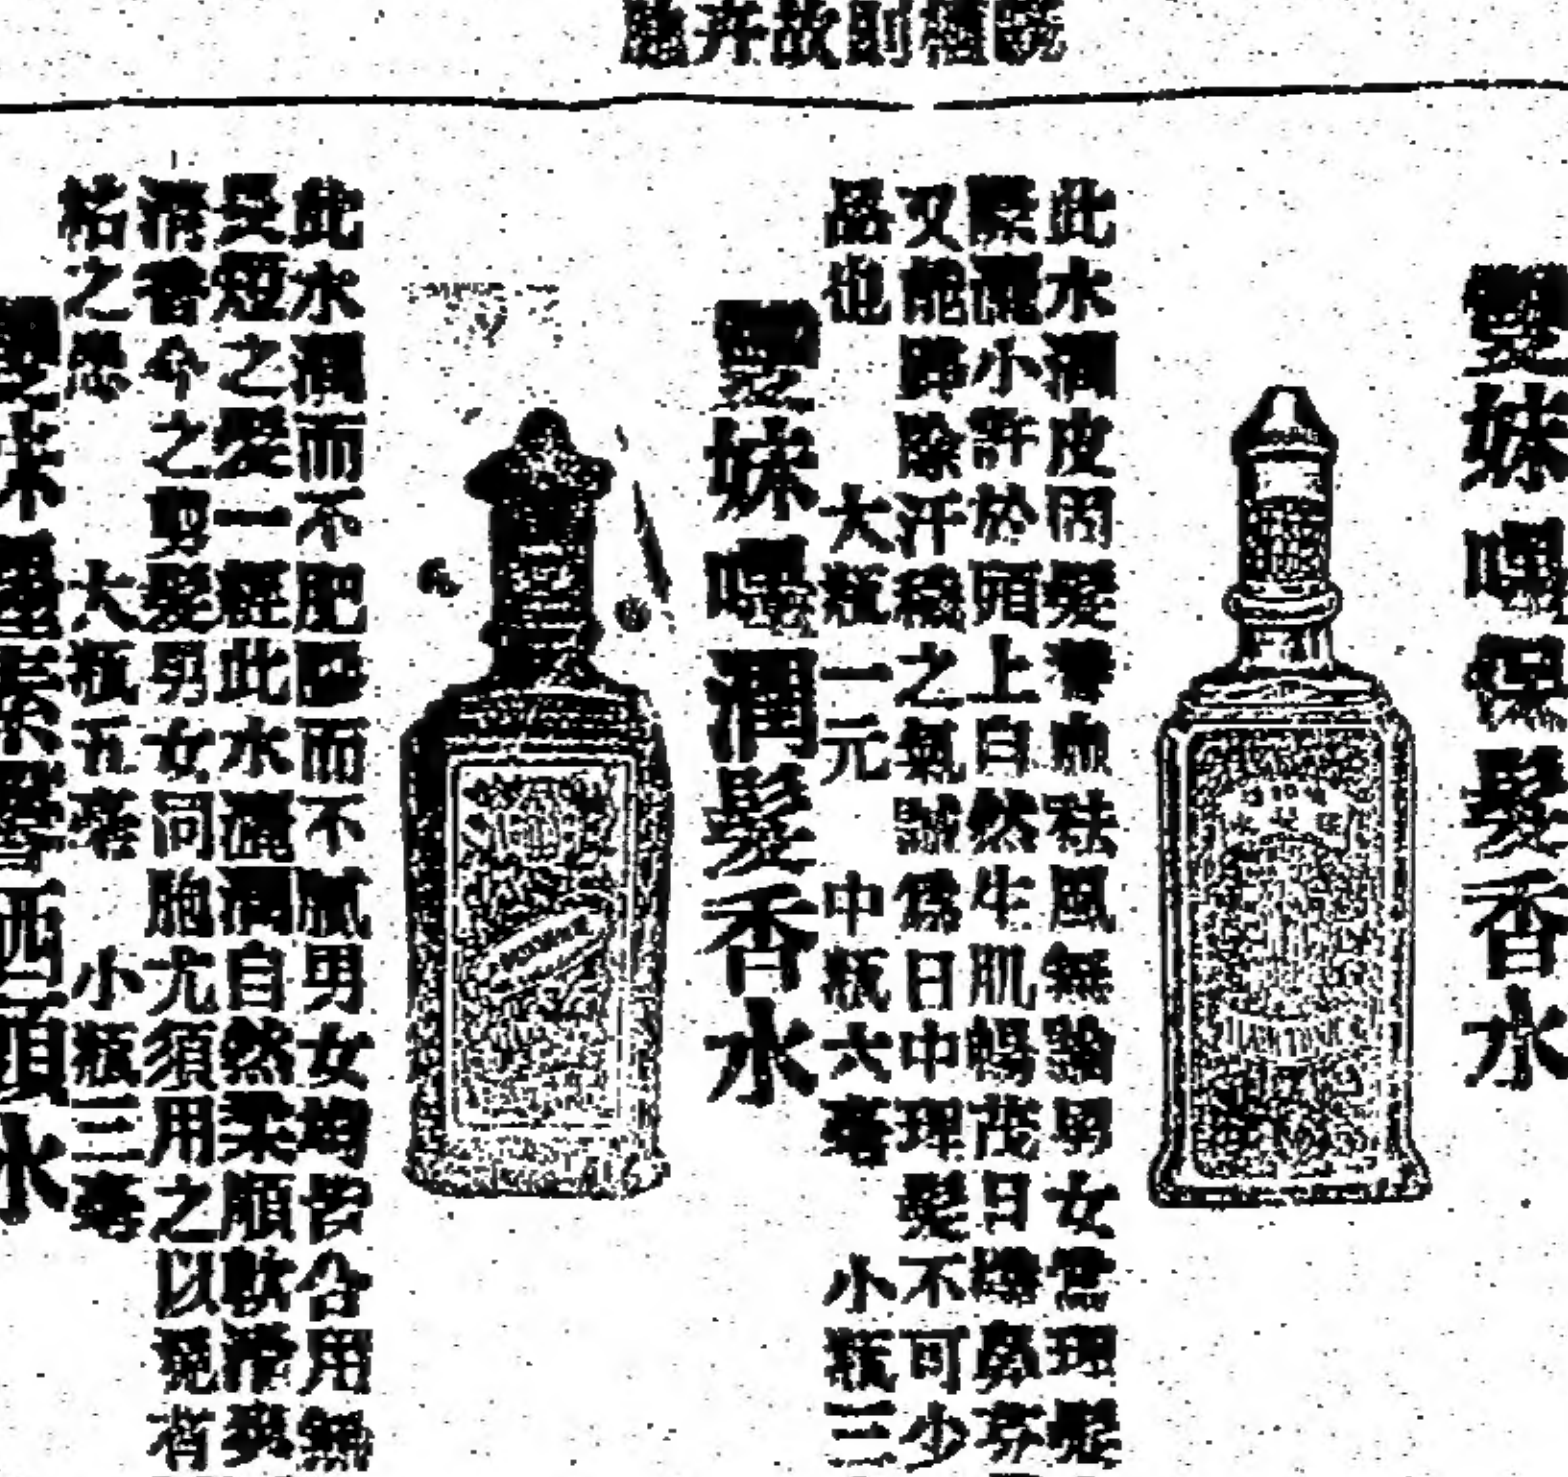 雙妹嘜保髮香水
此水潤皮肉髮養血袪風無論男女當理髮
際灑小許於頭上自然生肌暢茂日增鼻芬
又能辟除汗穢之氣誠爲日中理髮不可少
品也 大瓶一元 中瓶六毫 小瓶三
雙妹嘜潤髮香水
此水潤而不肥而不膩男女均皆合用無
長短之髮一經此水灑潤自然柔順軟滑與
清香今之剪髮男女同胞尤須用之以免有
粘之患 大瓶五毫 小瓶三毫
雙妹嘜素馨洒頭水